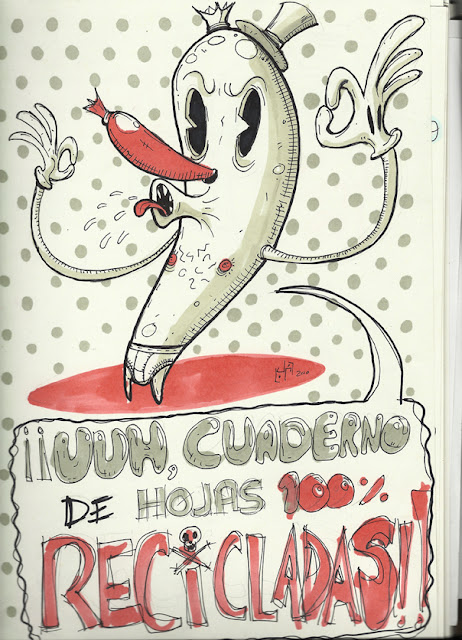 ¡¡UUH, CUADERNO
DE HOJAS 100%
RECICLADAS!!